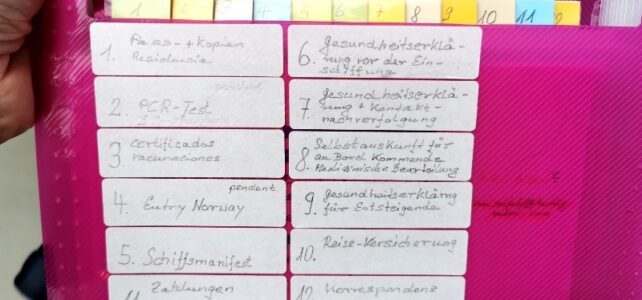 1 2 3 4 5 6 7 8 9 10 11
1. Pass-+Kopien
Residencia
pendent
2. PCR-Test
3. certificados
vacunaciones
pendent
4. Entry Norway
5. Schiffsmanifest
11. Zahlungen
6. gesundheitserklä-
rung vor der Ein-
schiffung
7. gesundheitserklä-
rung + Kontakt-
nachverfolgung
8. Selbstauskunft für
an Bord Kommende
Medizinische Beurteilung
9. gesundheitserklärng
für Entsteigende
10. Reise-Versicherung
12. Korrespondenz